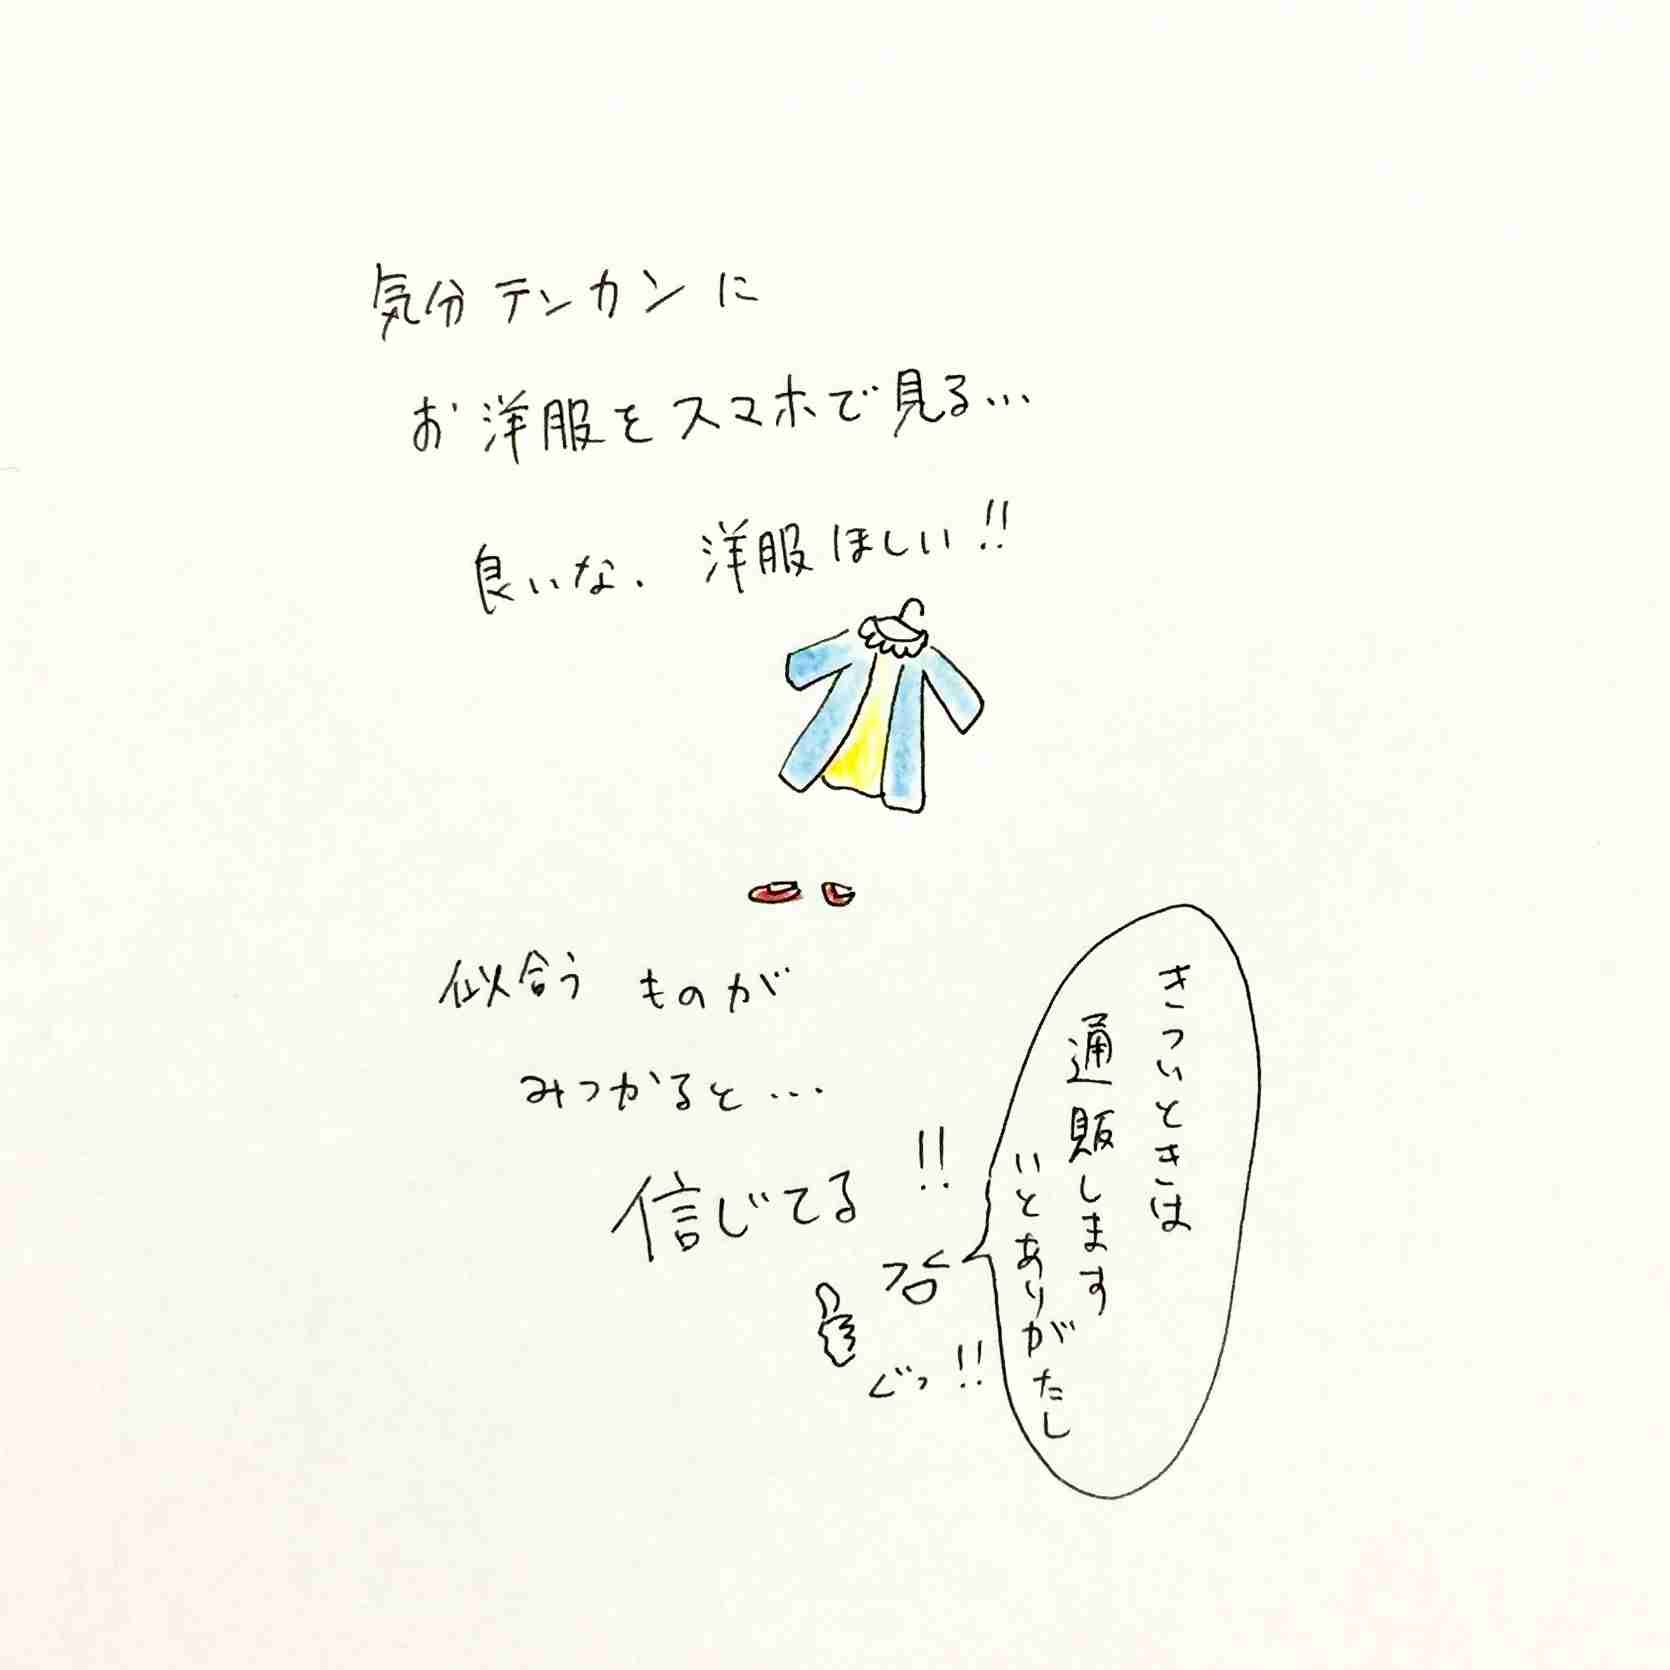 気分テンカンに
お洋服をスマホで見る…
良いな、洋服ほしい!!
似合うものが
みつかると…
信じてる!!
ぐっ!!
きついときは
通販します
いとありがたし